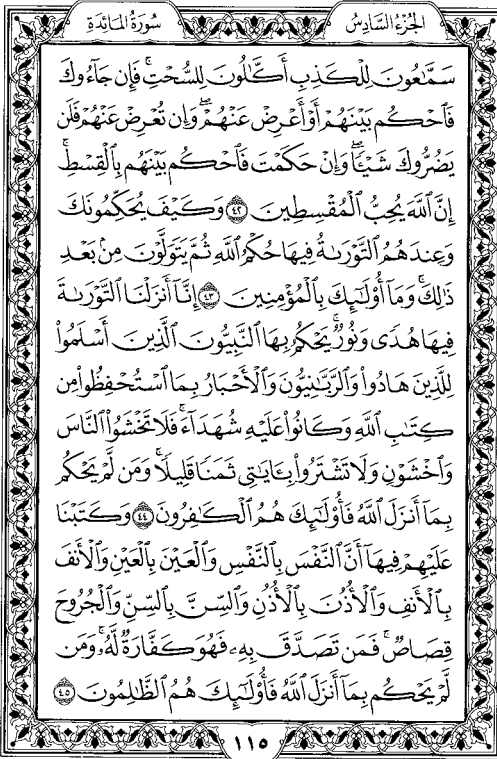 الجزء السادس
سورة المائدة
سَمَّٰعُونَ لِلْكَذِبِ أَكَّٰلُونَ لِلسُّحْتِ ۚ فَإِن جَآءُوكَ
فَٱحْكُم بَيْنَهُمْ أَوْ أَعْرِضْ عَنْهُمْ ۖ وَإِن تُعْرِضْ عَنْهُمْ فَلَن
يَضُرُّوكَ شَيْـًٔا ۖ وَإِنْ حَكَمْتَ فَٱحْكُم بَيْنَهُم بِٱلْقِسْطِ ۚ
إِنَّ ٱللَّهَ يُحِبُّ ٱلْمُقْسِطِينَ ٤٢ وَكَيْفَ يُحَكِّمُونَكَ
وَعِندَهُمُ ٱلتَّوْرَىٰةُ فِيهَا حُكْمُ ٱللَّهِ ثُمَّ يَتَوَلَّوْنَ مِنۢ بَعْدِ
ذَٰلِكَ ۚ وَمَآ أُو۟لَٰٓئِكَ بِٱلْمُؤْمِنِينَ ٤٣ إِنَّآ أَنزَلْنَا ٱلتَّوْرَىٰةَ
فِيهَا هُدًى وَنُورٌ ۚ يَحْكُمُ بِهَا ٱلنَّبِيُّونَ ٱلَّذِينَ أَسْلَمُوا۟
لِلَّذِينَ هَادُوا۟ وَٱلرَّبَّٰنِيُّونَ وَٱلْأَحْبَارُ بِمَا ٱسْتُحْفِظُوا۟ مِن
كِتَٰبِ ٱللَّهِ وَكَانُوا۟ عَلَيْهِ شُهَدَآءَ ۚ فَلَا تَخْشَوُا۟ ٱلنَّاسَ
وَٱخْشَوْنِ وَلَا تَشْتَرُوا۟ بِـَٔايَٰتِى ثَمَنًا قَلِيلًا ۚ وَمَن لَّمْ يَحْكُم
بِمَآ أَنزَلَ ٱللَّهُ فَأُو۟لَٰٓئِكَ هُمُ ٱلْكَٰفِرُونَ ٤٤ وَكَتَبْنَا
عَلَيْهِمْ فِيهَآ أَنَّ ٱلنَّفْسَ بِٱلنَّفْسِ وَٱلْعَيْنَ بِٱلْعَيْنِ وَٱلْأَنفَ
بِٱلْأَنفِ وَٱلْأُذُنَ بِٱلْأُذُنِ وَٱلسِّنَّ بِٱلسِّنِّ وَٱلْجُرُوحَ
قِصَاصٌ ۚ فَمَن تَصَدَّقَ بِهِۦ فَهُوَ كَفَّارَةٌ لَّهُۥ ۚ وَمَن
لَّمْ يَحْكُم بِمَآ أَنزَلَ ٱللَّهُ فَأُو۟لَٰٓئِكَ هُمُ ٱلظَّٰلِمُونَ ٤٥
١١٥